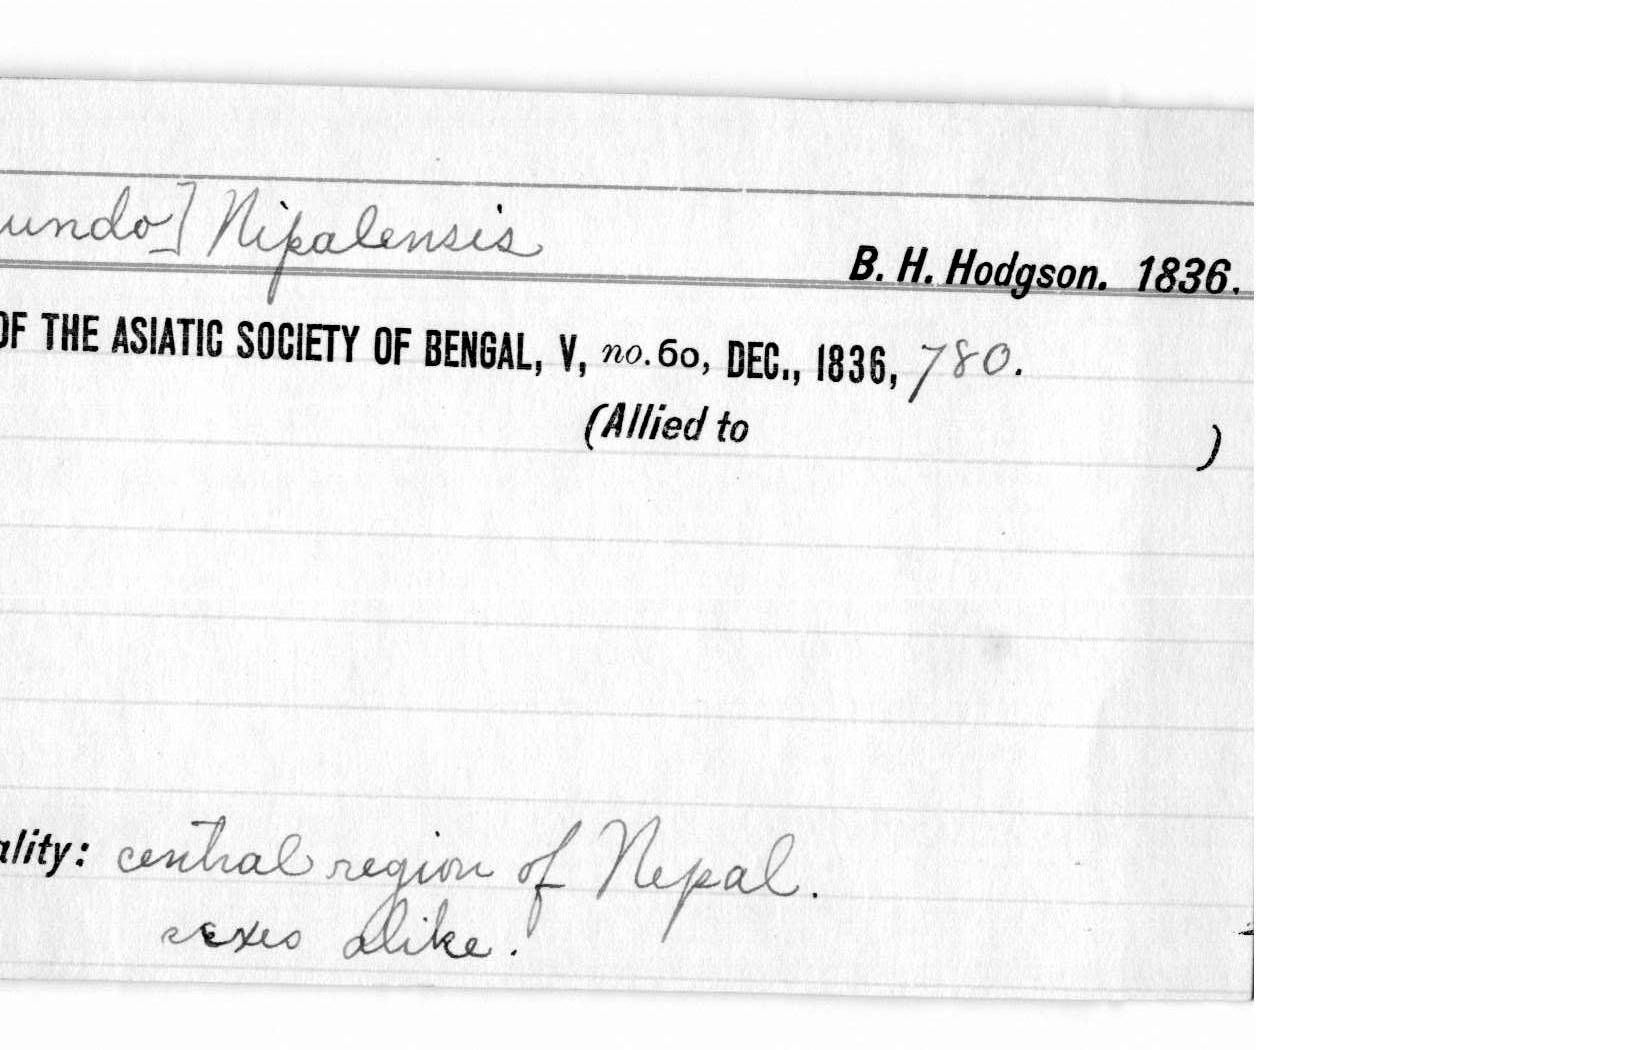 undo] Nipalensis
B. H. Hodgson. 1836.
OF THE ASIATIC SOCIETY OF BENGAL, V, no. 60, DEC., 1836, 780.
(Allied to )
ality: central region of Nepal.
sexes alike.